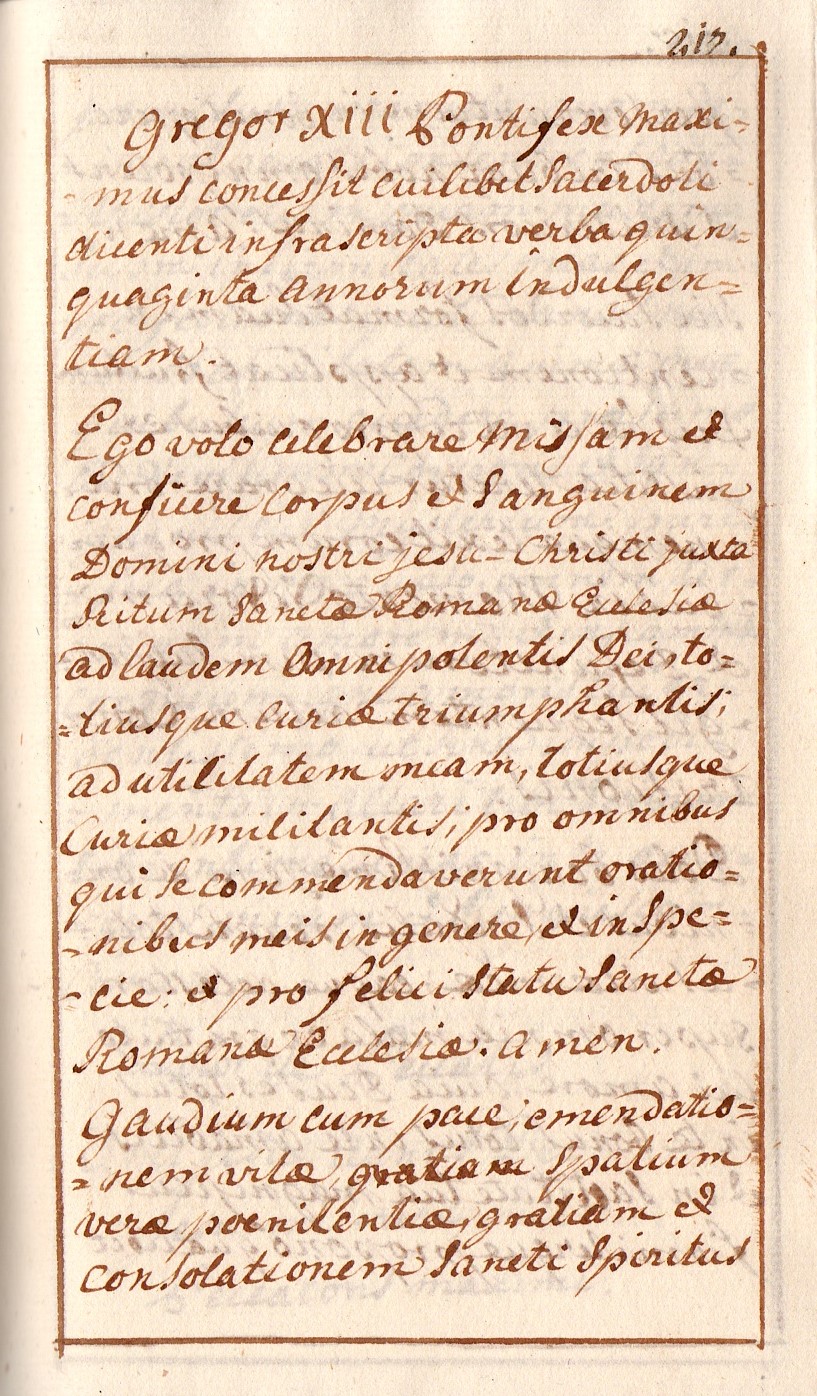 217.
Gregor XIII Pontifex Maxi=
- mus concessit cuilibet Sacerdoti
dicenti infra scripta verba quin=
quaginta annorum indulgen=
tiam.
Ego volo celebrare Missam et
conficere Corpus et Sanguinem
Domini nostri jesu - Christi juxta
Ritum Sanctæ Romanæ Ecclesiæ
ad laudem Omnipotentis Dei, to=
=tiusque Curiæ triumphantis;
ad utilitatem meam, totiusque
Curiæ militantis; pro omnibus
qui se commendaverunt oratio=
- nibus meis in genere, et in Spe=
- cie: et pro felici statu Sanctæ
Romanæ Ecclesiæ. amen.
Gaudium cum pace, emendatio=
= nem vitæ, gratiam Spatium
veræ poenitentiæ, gratiam et
consolationem Sancti Spiritus